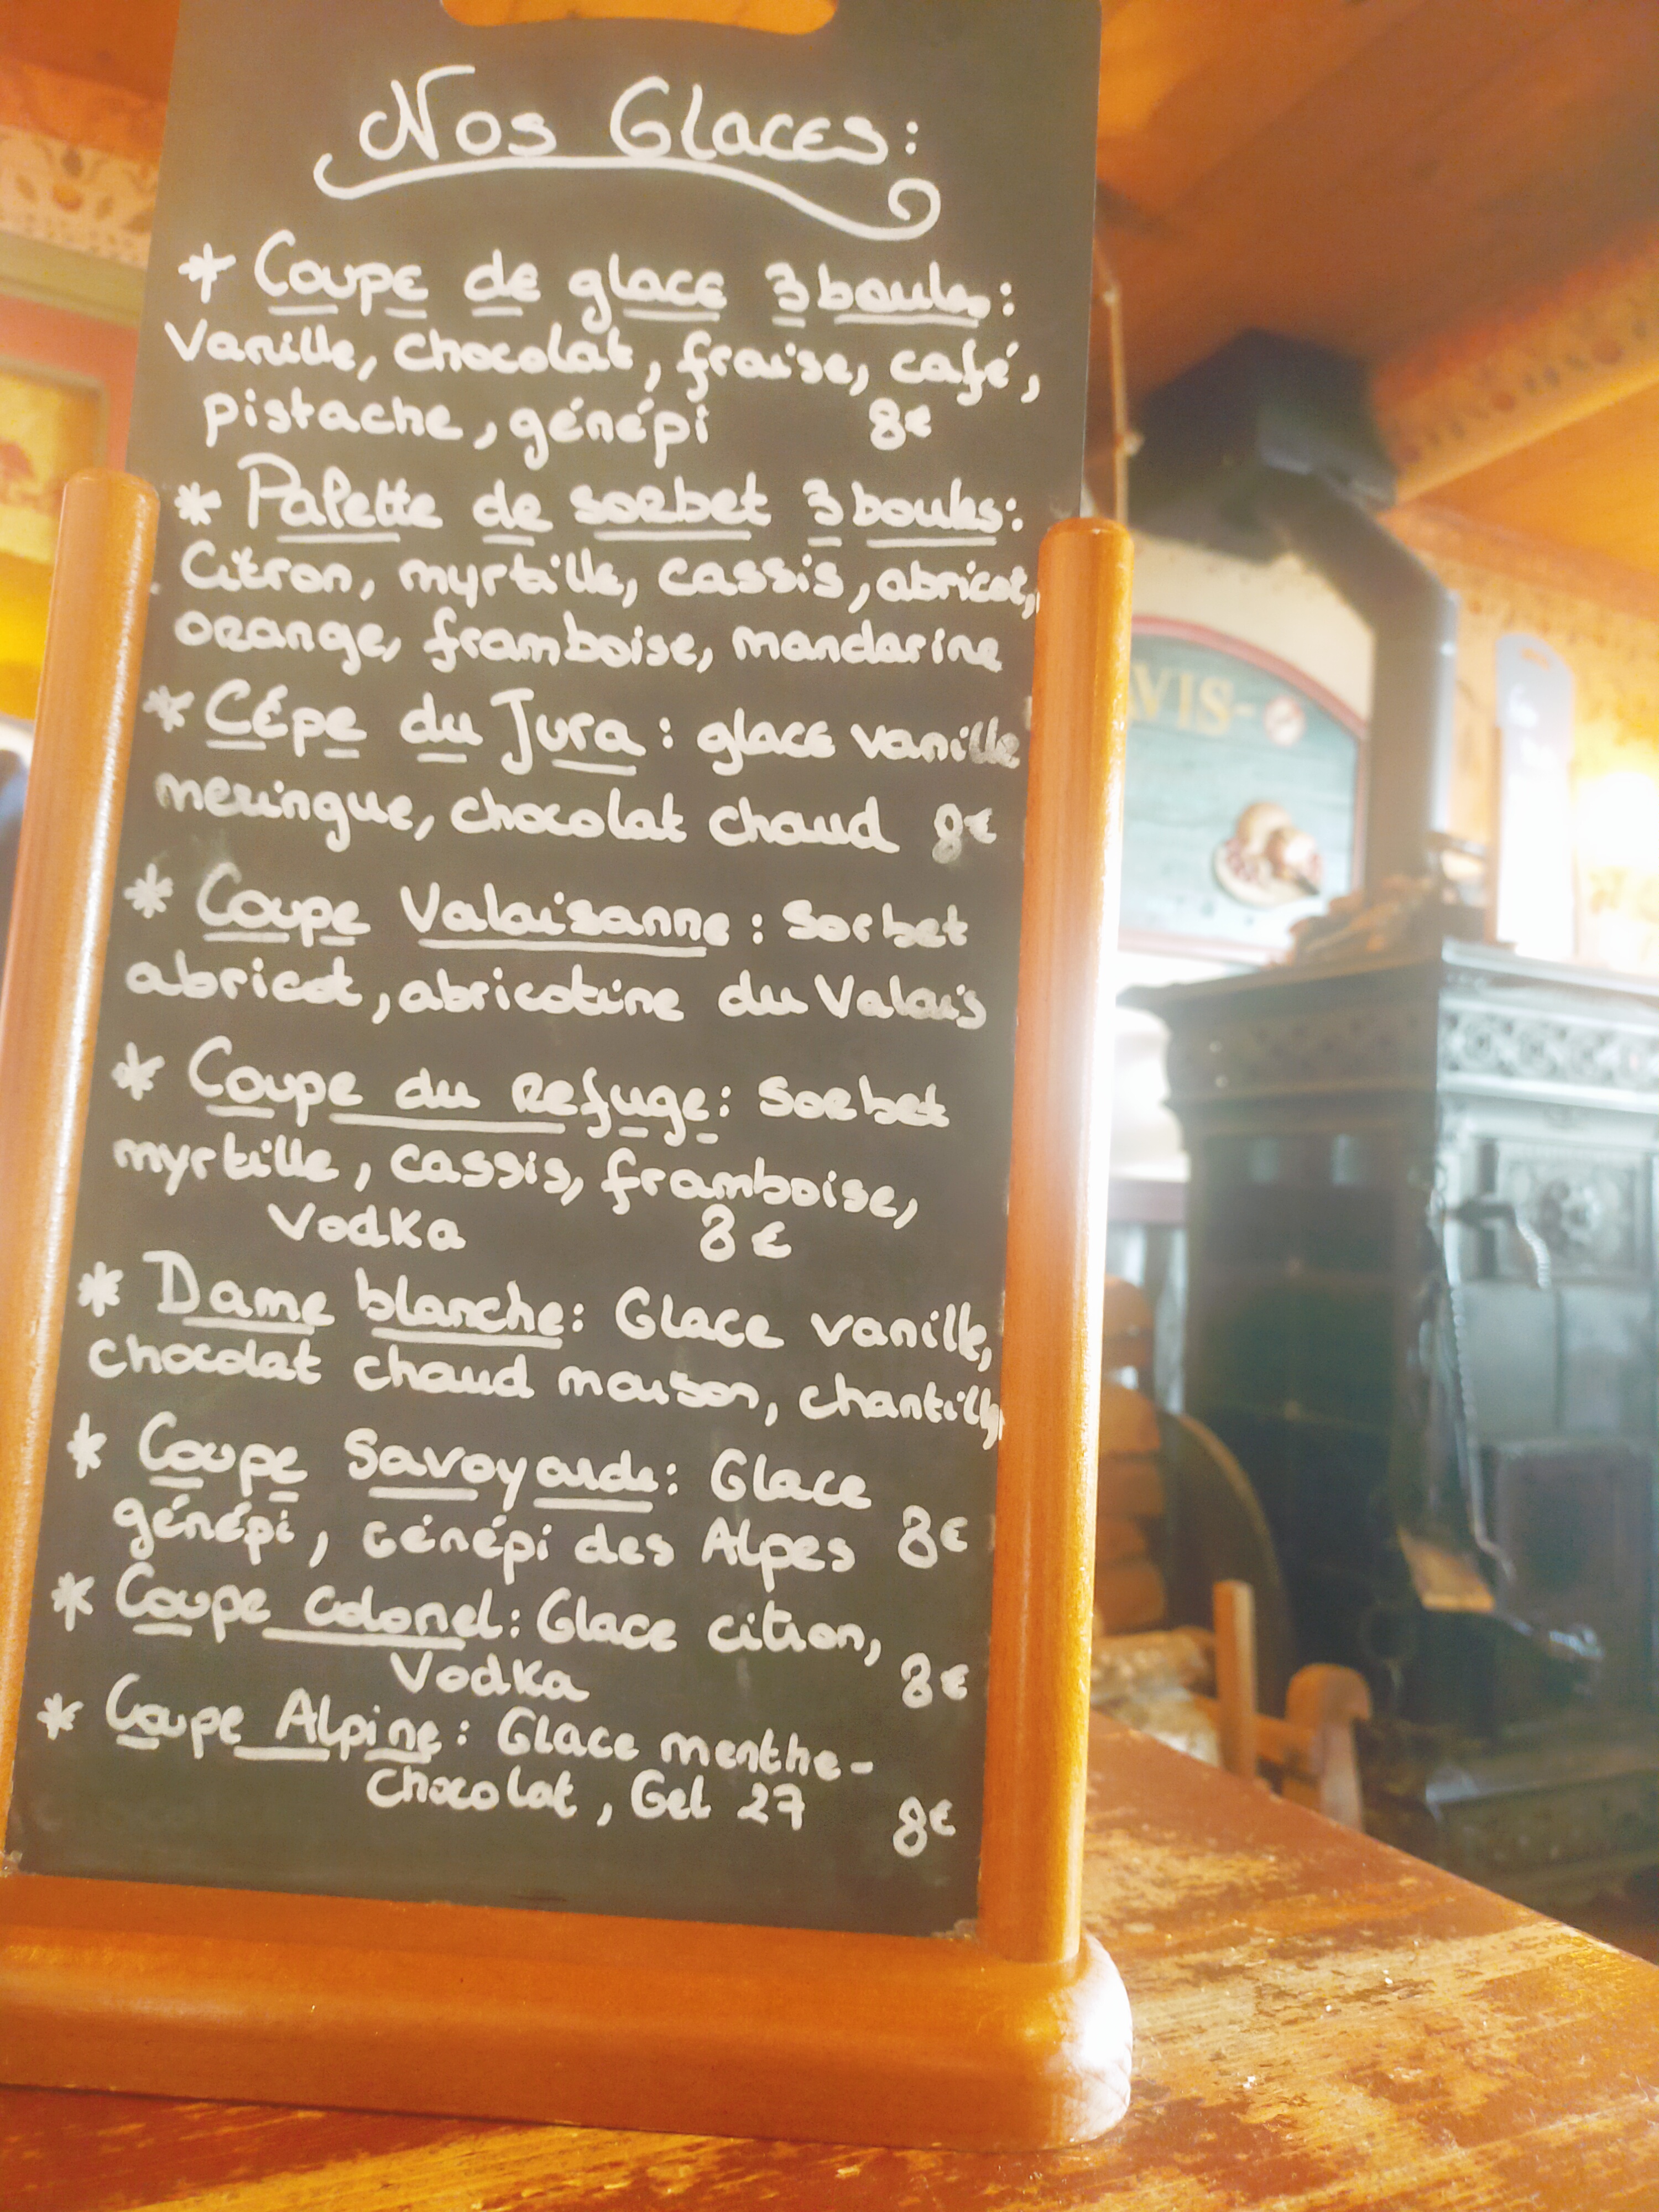 Nos Glaces:
* Coupe de glace 3 boules:
Vanille, chocolat, fraise, café,
pistache, génépi 8€
* Palette de sorbet 3 boules:
Citron, myrtille, cassis, abricot,
orange, framboise, mandarine
* CÉpe du Jura: glace vanille
meringue, chocolat chaud 8€
* Coupe Valaisanne: Sorbet
abricot, abricotine du Valais
* Coupe du Refuge: Sorbet
myrtille, cassis, framboise,
Vodka 8€
* Dame blanche: Glace vanille,
chocolat chaud maison, chantilly
* Coupe Savoyarde: Glace
génépi, Génépi des Alpes 8€
* Coupe Colonel: Glace citron,
Vodka 8€
* Coupe Alpine: Glace menthe-
chocolat, Get 27 8€
VIS-